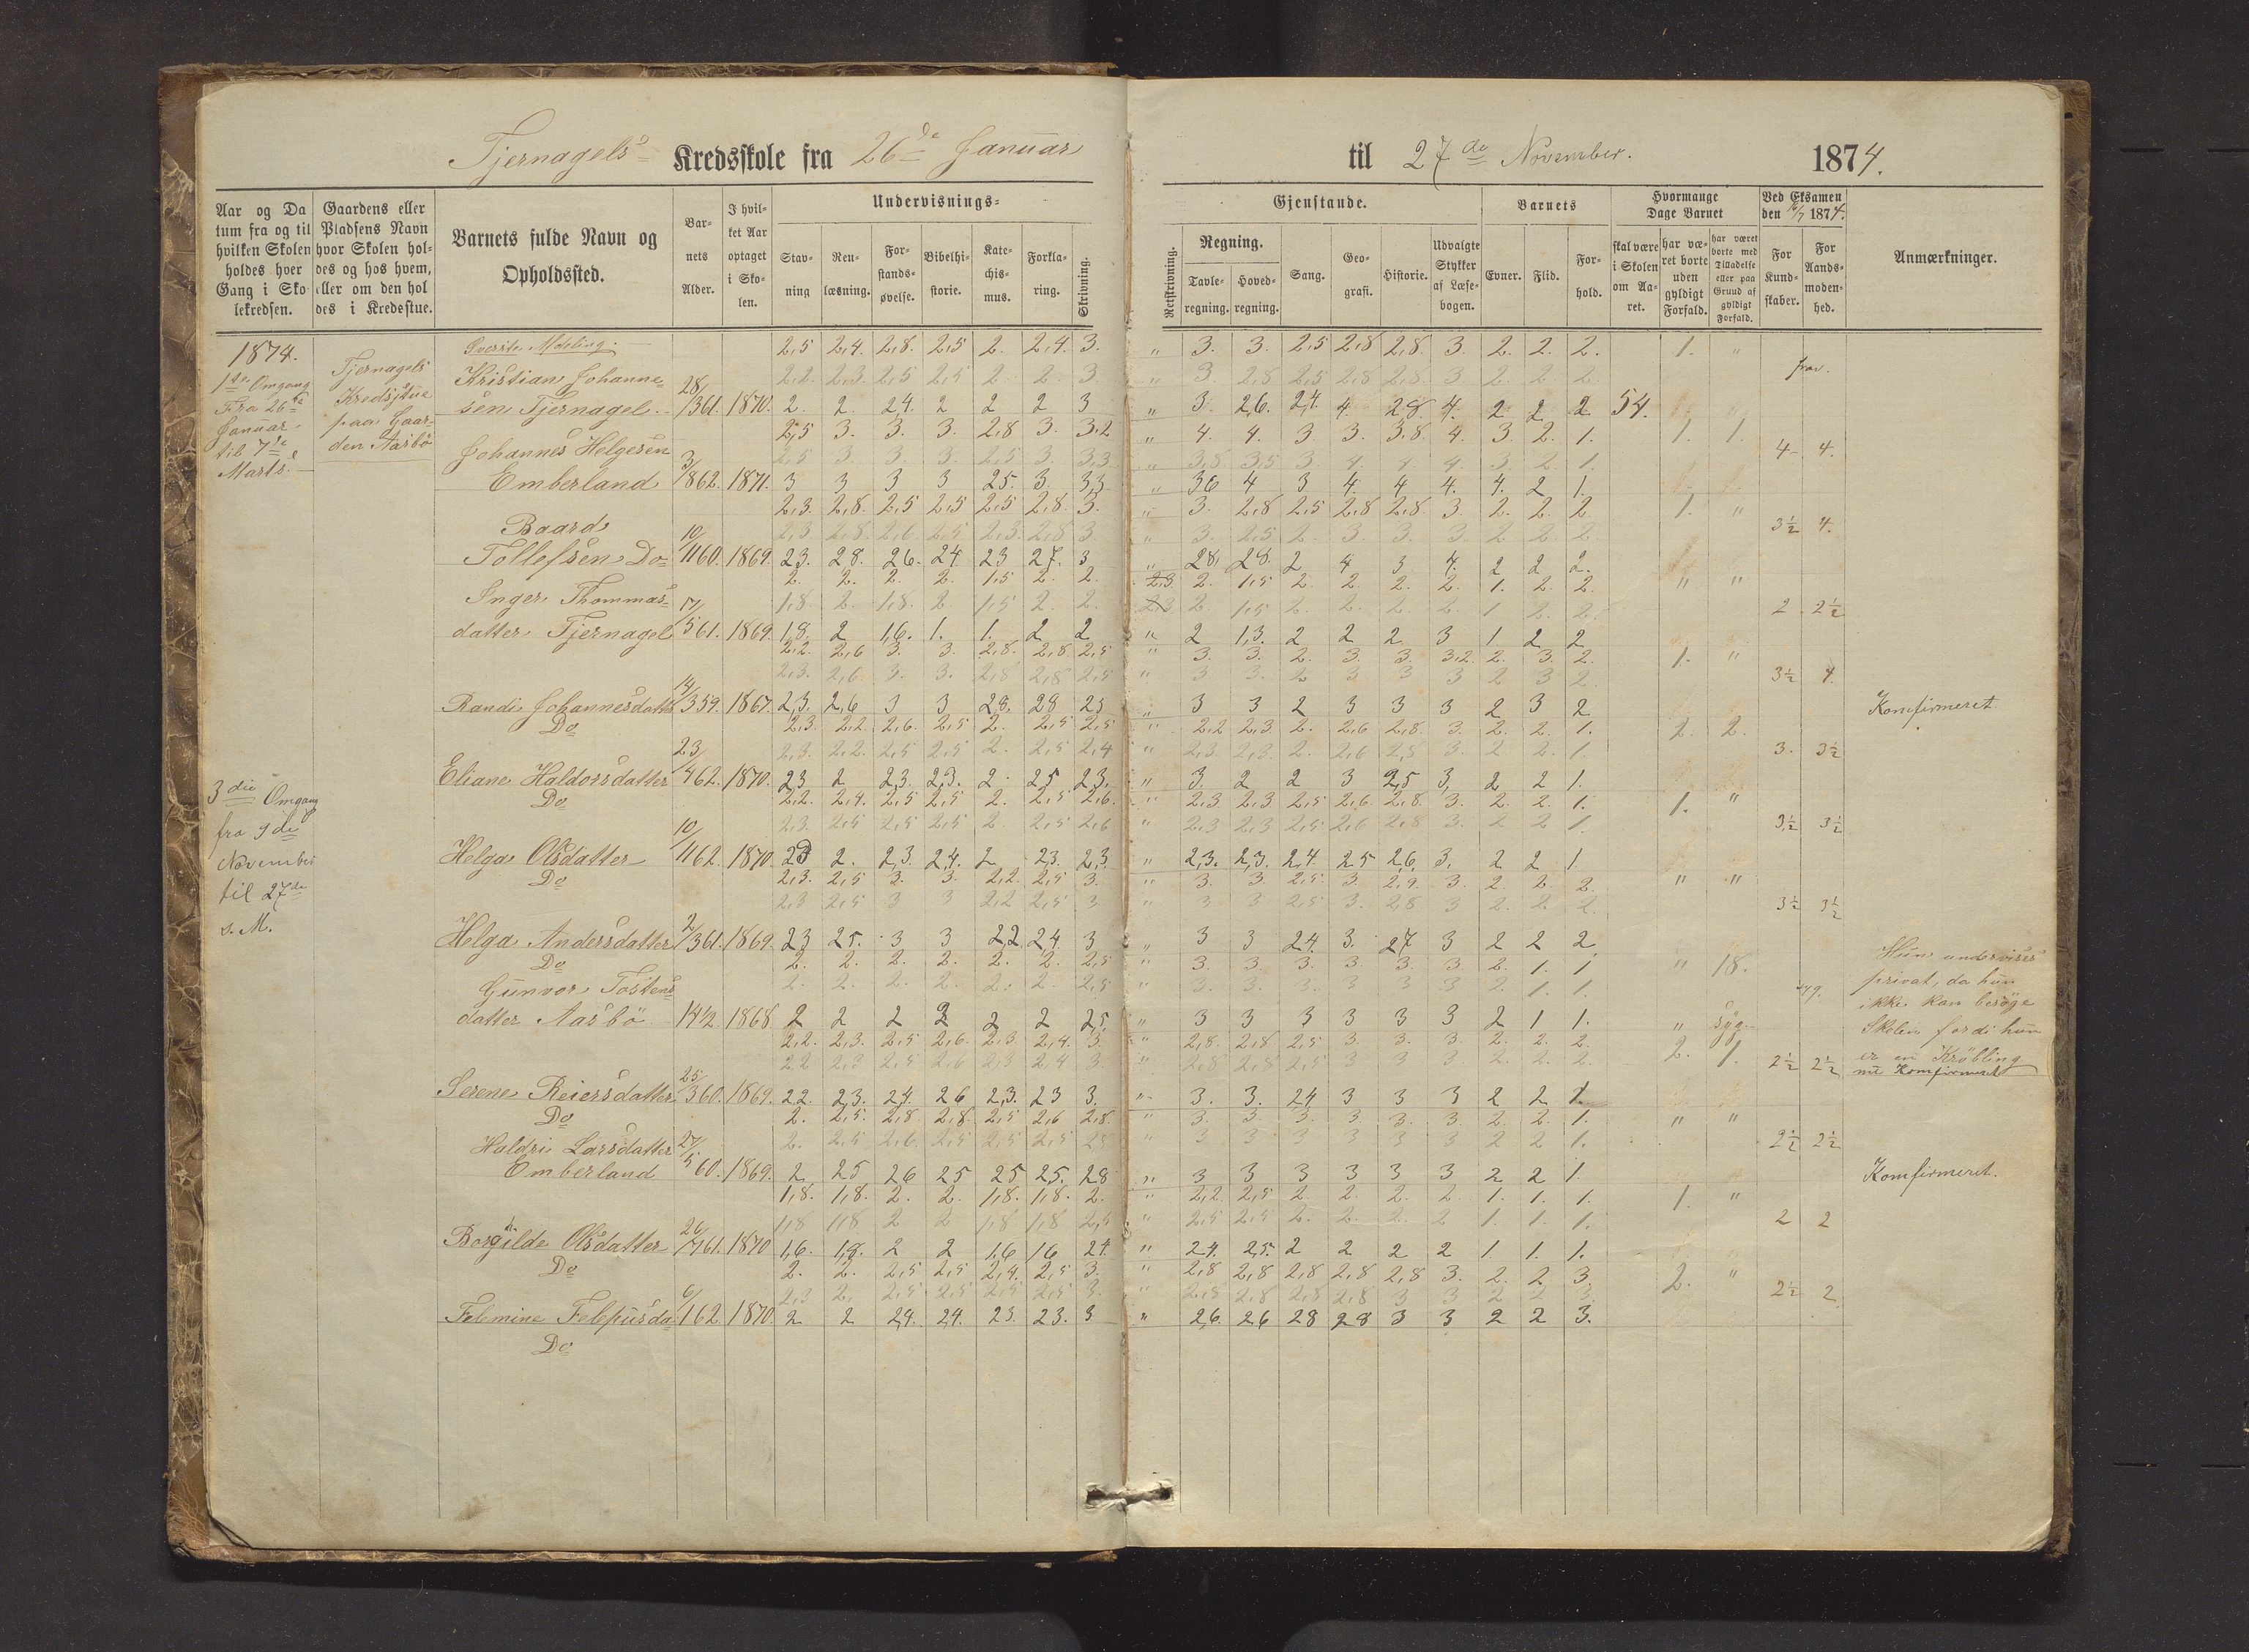 Tjernagels Kredsskole fra 26de Januar til 27de November. 1874.
Aar og Da
tum fra og til
hvilken Skolen
holdes hver
Gang i Sko
lekredsen.
Gaardens eller
Pladsens Navn
hvor Skolen hol-
des og hos hvem,
eller om den hol
des i Kredsstue.
Barnets fulde Navn og
Opholdssted.
Bar-
nets
Alder.
I hvil-
ket Aar
optaget
i Sko-
len.
Undervisnings-
Stav-
ning
Ren-
læsning.
For-
stands-
øvelse.
Bibelhi-
storie.
Kate-
chis-
mus.
Forkla-
ring.
Skrivning.
Gjenstande.
Retskrivning.
Regning.
Tavle-
regning.
Hoved-
regning.
Sang.
Geo-
grafi.
Historie.
Udvalgte
Stykker
af Læse-
bogen.
Barnets
Evner.
Flid.
For-
hold.
Hvormange
Dage Barnet
skal være
i Skolen
om Aa-
ret.
har væ-
ret borte
uden
gyldigt
Forfald.
har været
borte med
Tilladelse
eller paa
Grund af
gyldigt
Forfald.
Ved Eksamen
den 1874.
For
Kund-
skaber.
For
Aands-
moden-
hed.
Anmærkninger.
1874.
1ste Omgang
Fra 26de
Januar
til 7de
Marts.
Tjernagels
Kredsstue
paa Gaar-
den Aasbö
3die Omgang
fra 9de
November
til 27de
s. M.
2,5 2,4. 2,8. 2,5 2. 2,4. 3. " 3. 3. 2,5 2,8 2,8. 3. 2. 2. 2. 1. "
Kristian Johanne- 2,2. 2,3. 2,5 2,5 2. 2. 3 " 3 2,8 2,5 2,8 2,8. 3. 2. 2. 2. frav.
sen Tjernagel. 28/361. 1870. 2. 2. 24. 2 2 2 3 " 3. 26. 24. 4. 28. 4. 2 2 2 54.
2,5 3. 3. 3. 2,8 3. 3.2 " 4. 4. 3 3. 3,8. 4. 3. 2. 1. 1. 1.
Johannes Helgesen 2,5 3 3. 3. 2,5 3. 3,3 " 3,8 3,5 3. 4. 4. 4. 3. 2. 1. 4 4.
Emberland 3/862. 1871. 3 3 3 3 25. 3. 33 " 36 4 3 4. 4 4. 4. 2 1.
2,3. 2,8. 2,5 2,5 2,5 2,8. 3. " 3. 2,8 2,5 2,8 2,8 3. 2. 2. 2. 1. "
Baard 2,3. 2,8. 2,6. 2,5 2,3. 2,8 3 " 3. 2,5 2. 3. 3. 3 2. 2. 2. 3½ 4.
Tollefsen Do 10/1160. 1869. 23. 28. 26. 24. 23 27. 3 " 28. 28. 2 4 3 4. 2 2 2.
2. 2. 2. 2. 1,5 2. 2. 2,3. 2. 1,5 2. 2. 2. 2. 1. 2. 2. " "
Inger Thommas- 1,8. 2. 1,8. 2. 1,5 2. 2. 2 1,5 2. 2. 2. 2. 1 2. 2. 2 2½
datter Tjernagel 17/561. 1869. 1,8. 2 1,6. 1. 1. 2 2 " 2 1,3. 2 2 2 3 1. 2 2
2,2. 2,6 3. 3. 2,8. 2,8. 2,5 " 3. 3. 2. 3. 3. 3,2. 2. 3. 2. 1. "
2,3. 2,6. 3. 3. 2,8 2,8 2,5 " 3 3. 2 3 3 3 2 3 2 3½ 4.
Randi Johannesdatter 14/359. 1867. 23. 26 3 3 28. 28 25 " 3 3 2 3 3 3 2 3 2 Komfirmeret
Do 2,3. 2,2. 2,6. 2,5 2. 2,5 2,5 " 2,2 2,3 2. 2,6 2,8. 3. 2. 2. 1. 2. 2.
2,3. 2,2. 2,5 2,5 2. 2,5 2,4 " 2,3 2,3. 2. 2,6 2,5 3. 2 2 1. 3. 3½
Eliane Haldorsdatter 23/462. 1870. 23 2 23. 23. 2 25 23. " 3. 2 2 3 2,5 3, 2 2 1.
Do 2,2. 2,4. 2,5 2,5 2. 2,5 2,6. " 2,3 2,3 2,5 2,6. 2,8. 3. 2. 2. 1. 1. "
2,3. 2,5 2,5 2,5 2. 2,5 2,6 " 2,3 2,3 2,5 2,6 2,8 3. 2 2 1. 3½ 3½
Helga Olsdatter 10/1162. 1870. 23 2. 2,3. 24. 2 23. 2,3 " 2,3. 2,3. 24. 25 26 3. 2 2 1
Do 2,3. 2,5 3. 3. 2,2. 2,5 3. " 3. 3. 2,5. 3. 2,9. 3. 2. 2. 2. " "
2,3 2,5 3 3 2,2 2,5 3 " 3 3 2,5 3. 2,8 3 2. 2. 2. 3½ 3½
Helga Andersdatter 2/361. 1869. 23 25. 3 3 22 24. 3 " 3 3 24. 3. 27 3 2 2 2
Do 2. 2. 2. 2. 2. 2. 2,5 " 3. 3. 3. 3. 3. 3. 2. 1. 1. " 18. Hun undervises
Gunvor Tostens- 2. 2. 2. 2. 2. 2. 2,5 " 3. 3. 3. 3 3 3 2. 1. 1. syg. privat, da hun
ikke kan besöge
datter Aasbö 14½ 1868 2 2 2 2 2 2 25 " 3 3 3 3 3 3 2 1 1. " syg. Skolen fordi hun
2,2. 2,3. 2,5 2,6. 2,3 2,4. 3. " 2,8. 2,8 2,5 3. 3. 3. 2. 2. 2. 2. 1. er en Kröbling
2,2 2,3 2,5 2,6 2,3 2,4 3. " 2,8 2,8 2,5 3 3 3. 2. 2. 2. 2½ 2½ Komfirmeret
Serene Reiersdatter 25/360. 1869. 22. 23. 24. 26 2,3. 23 3. " 3. 3. 24 3 3 3 2 2 1.
Do 2. 2,5. 2,8 2,8. 2,5 2,6 2,8. " 3. 3. 3. 3. 3. 3. 2. 2. 1. " "
Haldri Larsdatter 2. 2,5 2,6. 2,5 2,5 2,5 2,8 " 3 3 3 3 3 3 2 2 1. 2½ 2½
Emberland 27/560. 1869. 2 25 26 25 25 25. 28 " 3 3 3 3 3 3 2 2 1 Komfirmeret.
1,8. 1,8. 2. 2. 1,8. 1,8. 2. " 2,2. 2,5 2. 2. 2. 2. 1. 1. 1. 1. "
1,8 1,8 2 2 1,8 1,8 2,5 " 2,5 2,5 2. 2. 2. 2 1. 1. 1. 2 2
Borgilde Olsdatter 26/761. 1870 1,6. 1,8. 2 2 1,6 16 24. " 24. 25. 2 2 2 2 1. 1. 1.
Do 2. 2. 2,5 2,5 2,4. 2,5 3. " 2,8 2,8 2,8 2,8 2,8 3. 2. 2. 3. 2. "
2,3 2. 2,5 2,5 2,5 2,5 3. " 2,8 2,8 2,8 2,8 3 3 2 2 3. 2½ 2
Felemine Felepusda 6/162 1870. 2 2 24. 24. 23. 23. 3 " 26. 26 28 28 3 3 2 2 3.
Do